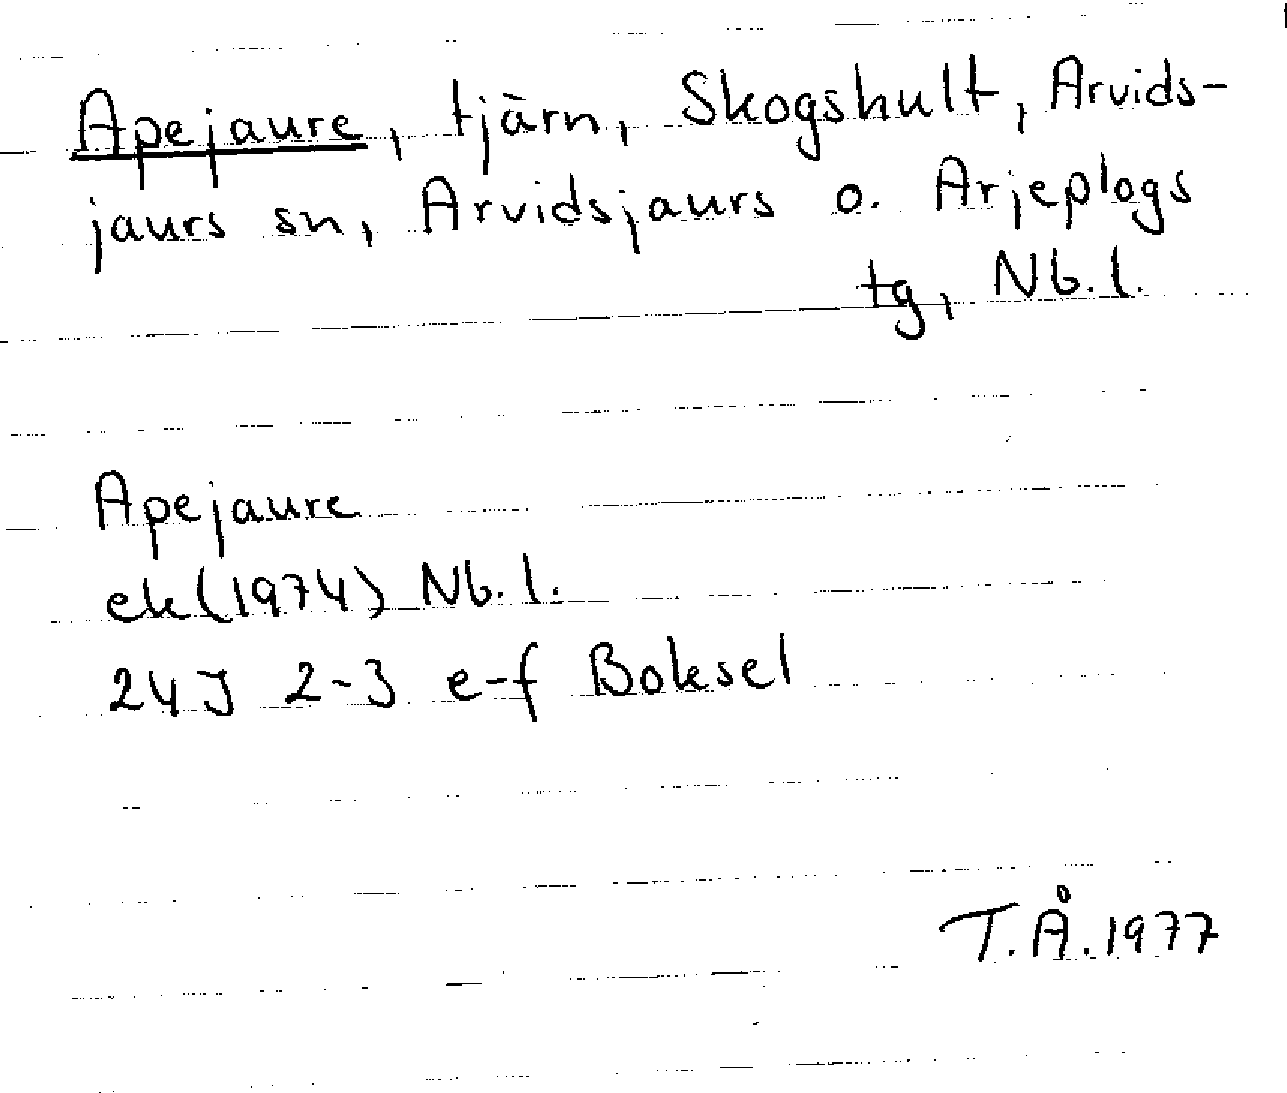 Apejaure, tjärn, Skogshult, Arvids-
jaurs sn, Arvidsjaurs o. Arjeplogs
tg, Nb.l.
Apejaure
ek (1974) Nb.l.
24J 2-3 e-f Boksel
T.Å.1977